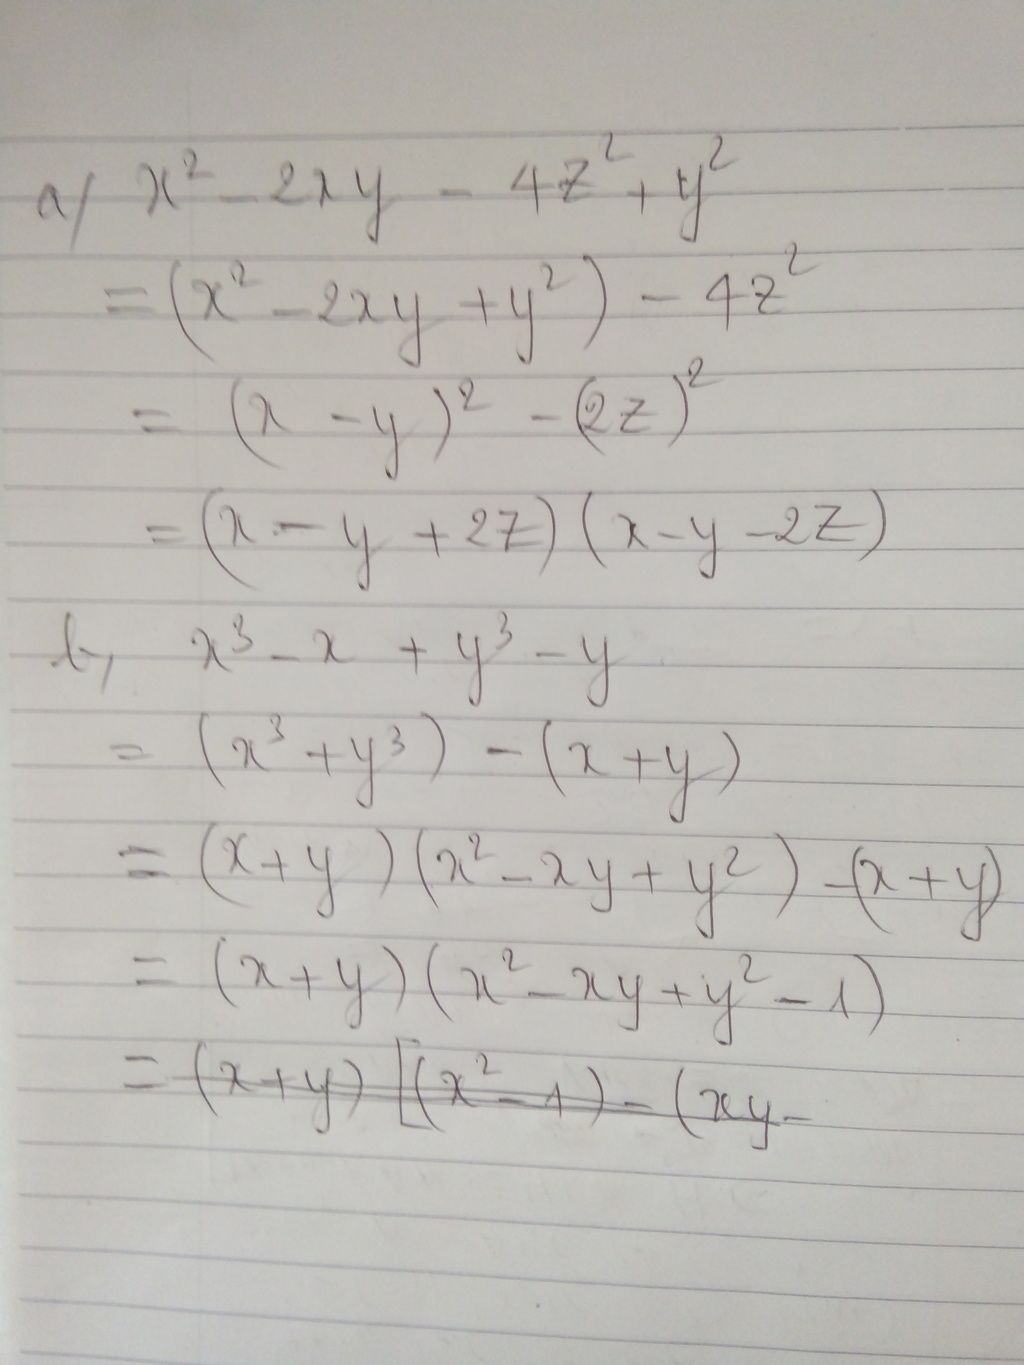 a/ x² - 2xy - 4z² + y²
= (x² - 2xy + y²) - 4z²
= (x - y)² - (2z)²
= (x - y + 2z) (x - y - 2z)
b, x³ - x + y³ - y
= (x³ + y³) - (x + y)
= (x + y) (x² - xy + y²) - (x + y)
= (x + y) (x² - xy + y² - 1)
= (x + y) [(x² - 1) - (xy -